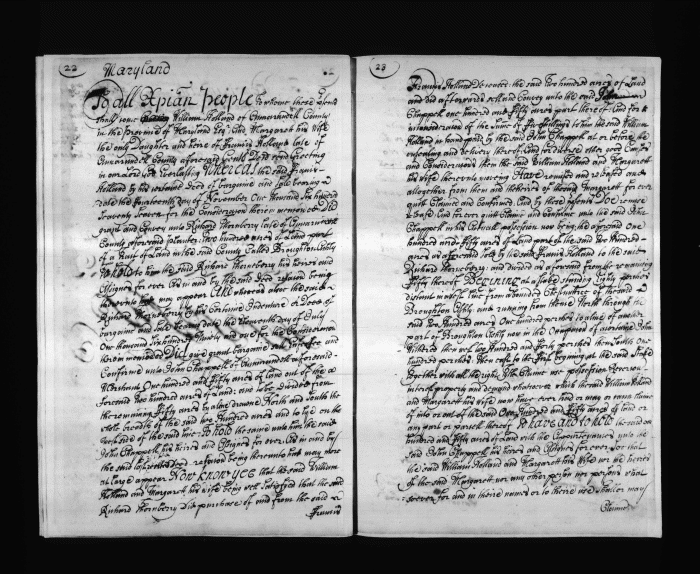 22 Maryland 22
To all Xpian People to whome these p̄sents
shall come William Holland of Annarundell County
in the Province of Maryland Esq. and Margaret his Wife
the only Daughter and heire of Francis Holland late of
Annarundell County aforesaid Send Greeting
in our Lord God Everlasting Whereas the said Francis
Holland by his Deed of bargaine and Sale bearing
date the fourteenth Day of November One thousand Six hundred
Seaventy Seaven for the Consideration therein menconed Did
grant and Convey unto Richard Thornbery late of Annarundell
County aforesaid planter Two hundred acres of Land part
of a tract of Land in the said County Called Broughton Ashly
To hold to him the said Richard Thornbery his heires and
Assignes for ever As in and by the said Deed relacon being
thereunto had may appear And whereas alsoe the said
Richard Thornbery by his Certaine Indenture or Deed of
bargaine and Sale bearing date the Day of July
One thousand Six hundred and for the Consideracon
therein menconed Did give grant bargaine sell Enfeoffe and
Confirme unto John Chappell of Annarundell aforesaid
Merchant One hundred and fifty acres of Land out of the
aforesaid two hundred acres of Land: and to be Divided from
the remaining fifty acres by a line drawne North and South the
whole breadth of the said two Hundred acres and to lye on the
side of the said line To hold the same unto him the said
John Chappell his heires and Assignes for ever As in and by
the said relacon being thereunto had may more
at large appear Now know yee that the said William
Holland and Margaret his Wife being well Satisfied that the said
Richard Thornbery Did purchase of and from the said
Francis
23
Francis Holland the said Two hundred acres of Land
and did afterwards sell and Convey unto the said John
Chappell one hundred and fifty acres part thereof And for &
in consideracon of the Sume of five shillings to him the said William
Holland in hand paid by the said John Chappell at or before the
ensealing and delivery thereof and for diverse other good Causes
and Consideracons them the said William Holland and Margarett
his Wife thereunto moving Have remised and released and
altogether from them and the heires of the said Margarett for ever
quit Claimed and Confirmed And by these p̄sents Doe remise
release and for ever quit Claime and Confirme unto the said John
Chappell in his Actuall possession now being the aforesaid One
hundred and fifty acres of Land part of the said two Hundred
acres as aforesaid sold by the said Francis Holland to the said
Richard Thornbery: and divided as aforesaid from the remaining
fifty thereof Begining at a Stake Standing Eighty perches
distant in a West line from a bounded tree of the said
Broughton Ashly and running from thence North through the
said two Hundred acres One hundred perches to a line of another
part of Broughton Ashly now in the Ocupacon of
thence West two Hundred and forty perches then South One
hundred perches then East to the first begining at the said Stake
Together with all the right title Claime use possession Revercon
interest property and demand whatsoever which the said William Holland
and Margarett his Wife now have ever had or may or cann Clame
of into or out of the said One hundred and fifty acres of land or
any part or parcell thereof To have and to hold the said One
hundred and fifty acres of Land with the Appurtenances unto the
said John Chappell his heires and Assignes for ever Soe that
the said William Holland and Margarett his Wife nor the heires
of the said Margaret nor any other person nor persons what
soever for and in their names or to their use Shall or may
Claime